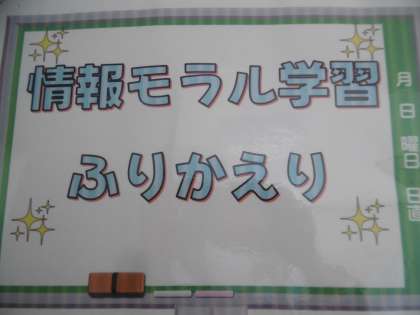 情報モラル学習
ふりかえり
月
日
曜日
日直